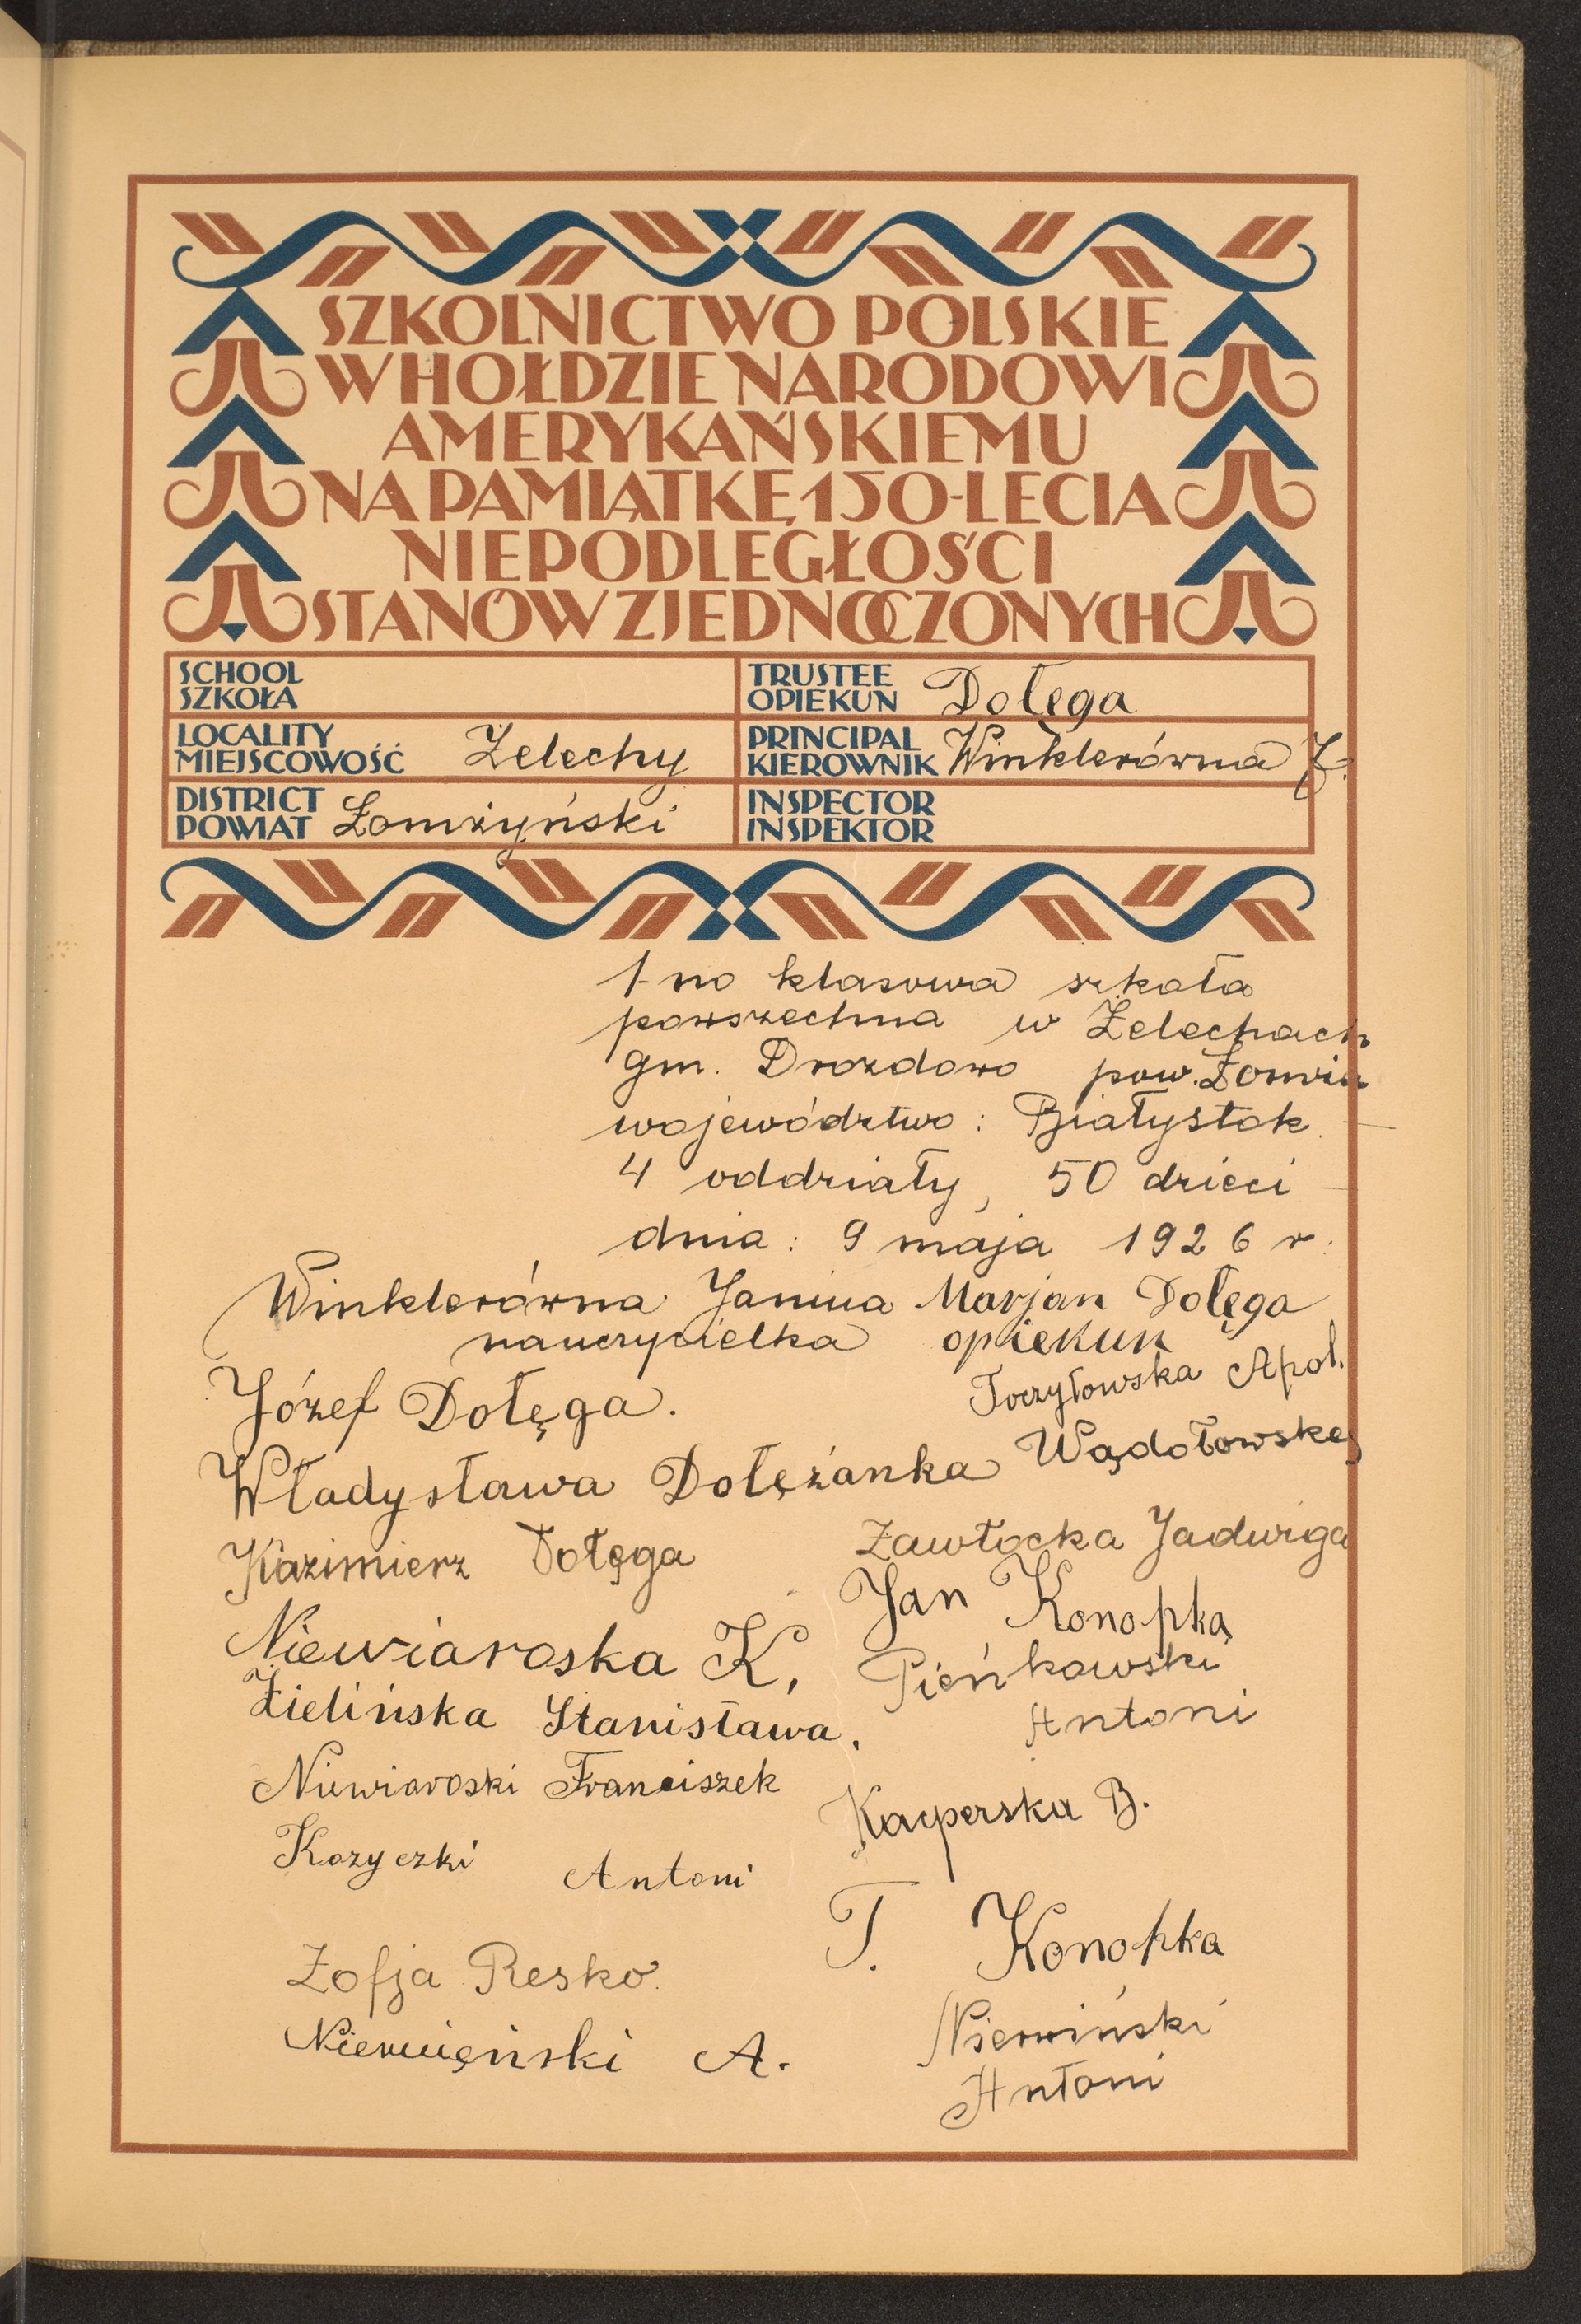 SZKOLNICTWO POLSKIE
W HOŁDZIE NARODOWI
AMERYKAŃSKIEMU
NA PAMIĄTKĘ 150-LECIA
NIEPODLEGŁOŚCI
STANÓW ZJEDNOCZONYCH
SCHOOL
SZKOŁA
TRUSTEE
OPIEKUN Dołęga
LOCALITY
MIEJSCOWOŚĆ Żelechy
PRINCIPAL
KIEROWNIK Winklerówna J.
DISTRICT
POWIAT Łomżyński
INSPECTOR
INSPEKTOR
1-no klasowa szkoła
powszechna w Żelechach
gm. Drozdowo pow. Łomża
województwo: Białystok.
4 oddziały, 50 dzieci
dnia: 9 maja 1926 r.
Winklerówna Janina Marjan Dołęga
nauczycielka opiekun
Józef Dołęga.
Toczyłowska Apol.
Władysława Dołężanka
Wądołowska
Kazimierz Dołęga
Zawłocka Jadwiga
Jan Konopka
Niewiaroska K.
Pieńkowski
Antoni
Zielińska Stanisława.
Niewiaroski Franciszek
Kacperska B.
Kozyczki Antoni
T. Konopka
Zofja Resko
Nierwiński
Antoni
A.